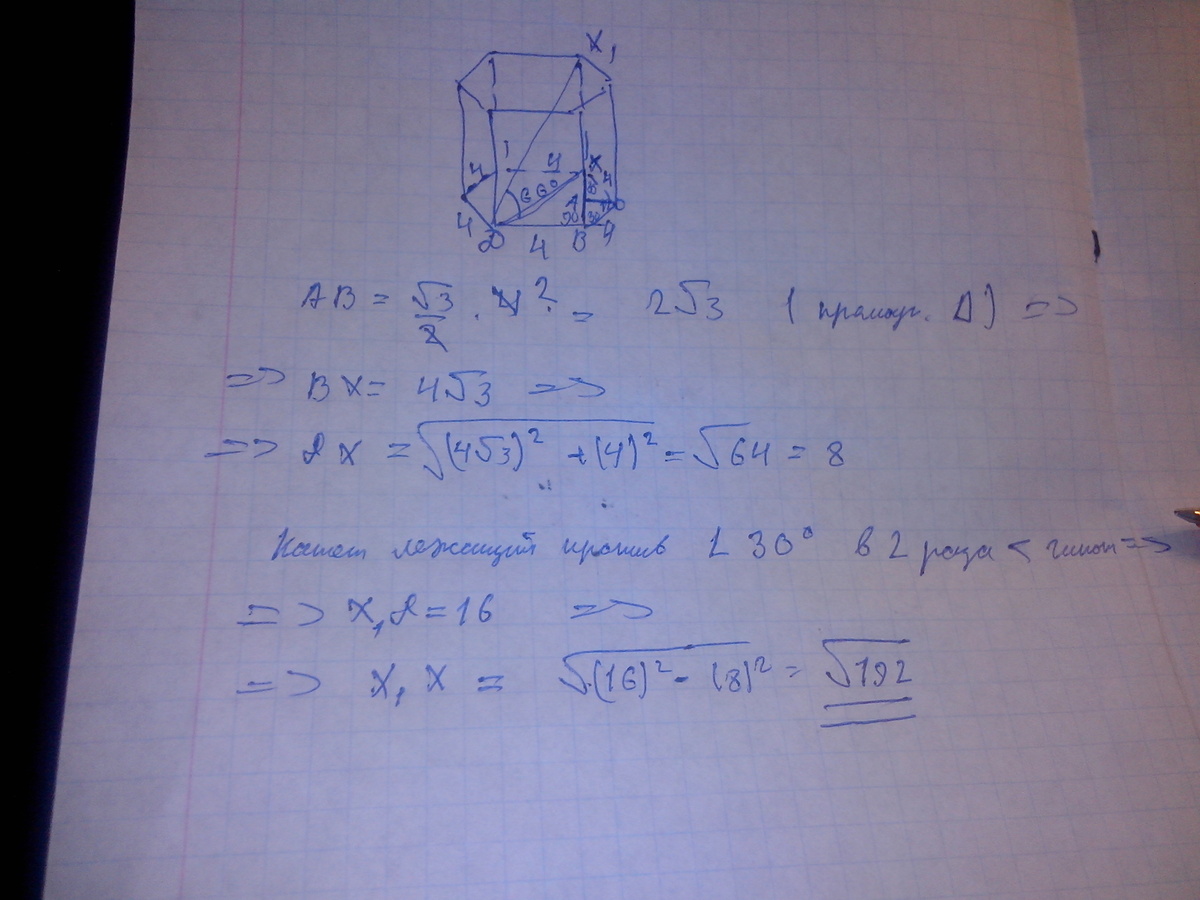 X₁
4 4 X
60° A
4 D 4 B 4
AB = √3/2 · 4² = 2√3 ( прямоуг. Δ) =>
=> BX = 4√3 =>
=> DX = √(4√3)² + (4)² = √64 = 8
Катет лежащий против ∠ 30° в 2 раза < гипот =>
=> X₁D = 16 =>
=> X₁X = √(16)² - (8)² = √192